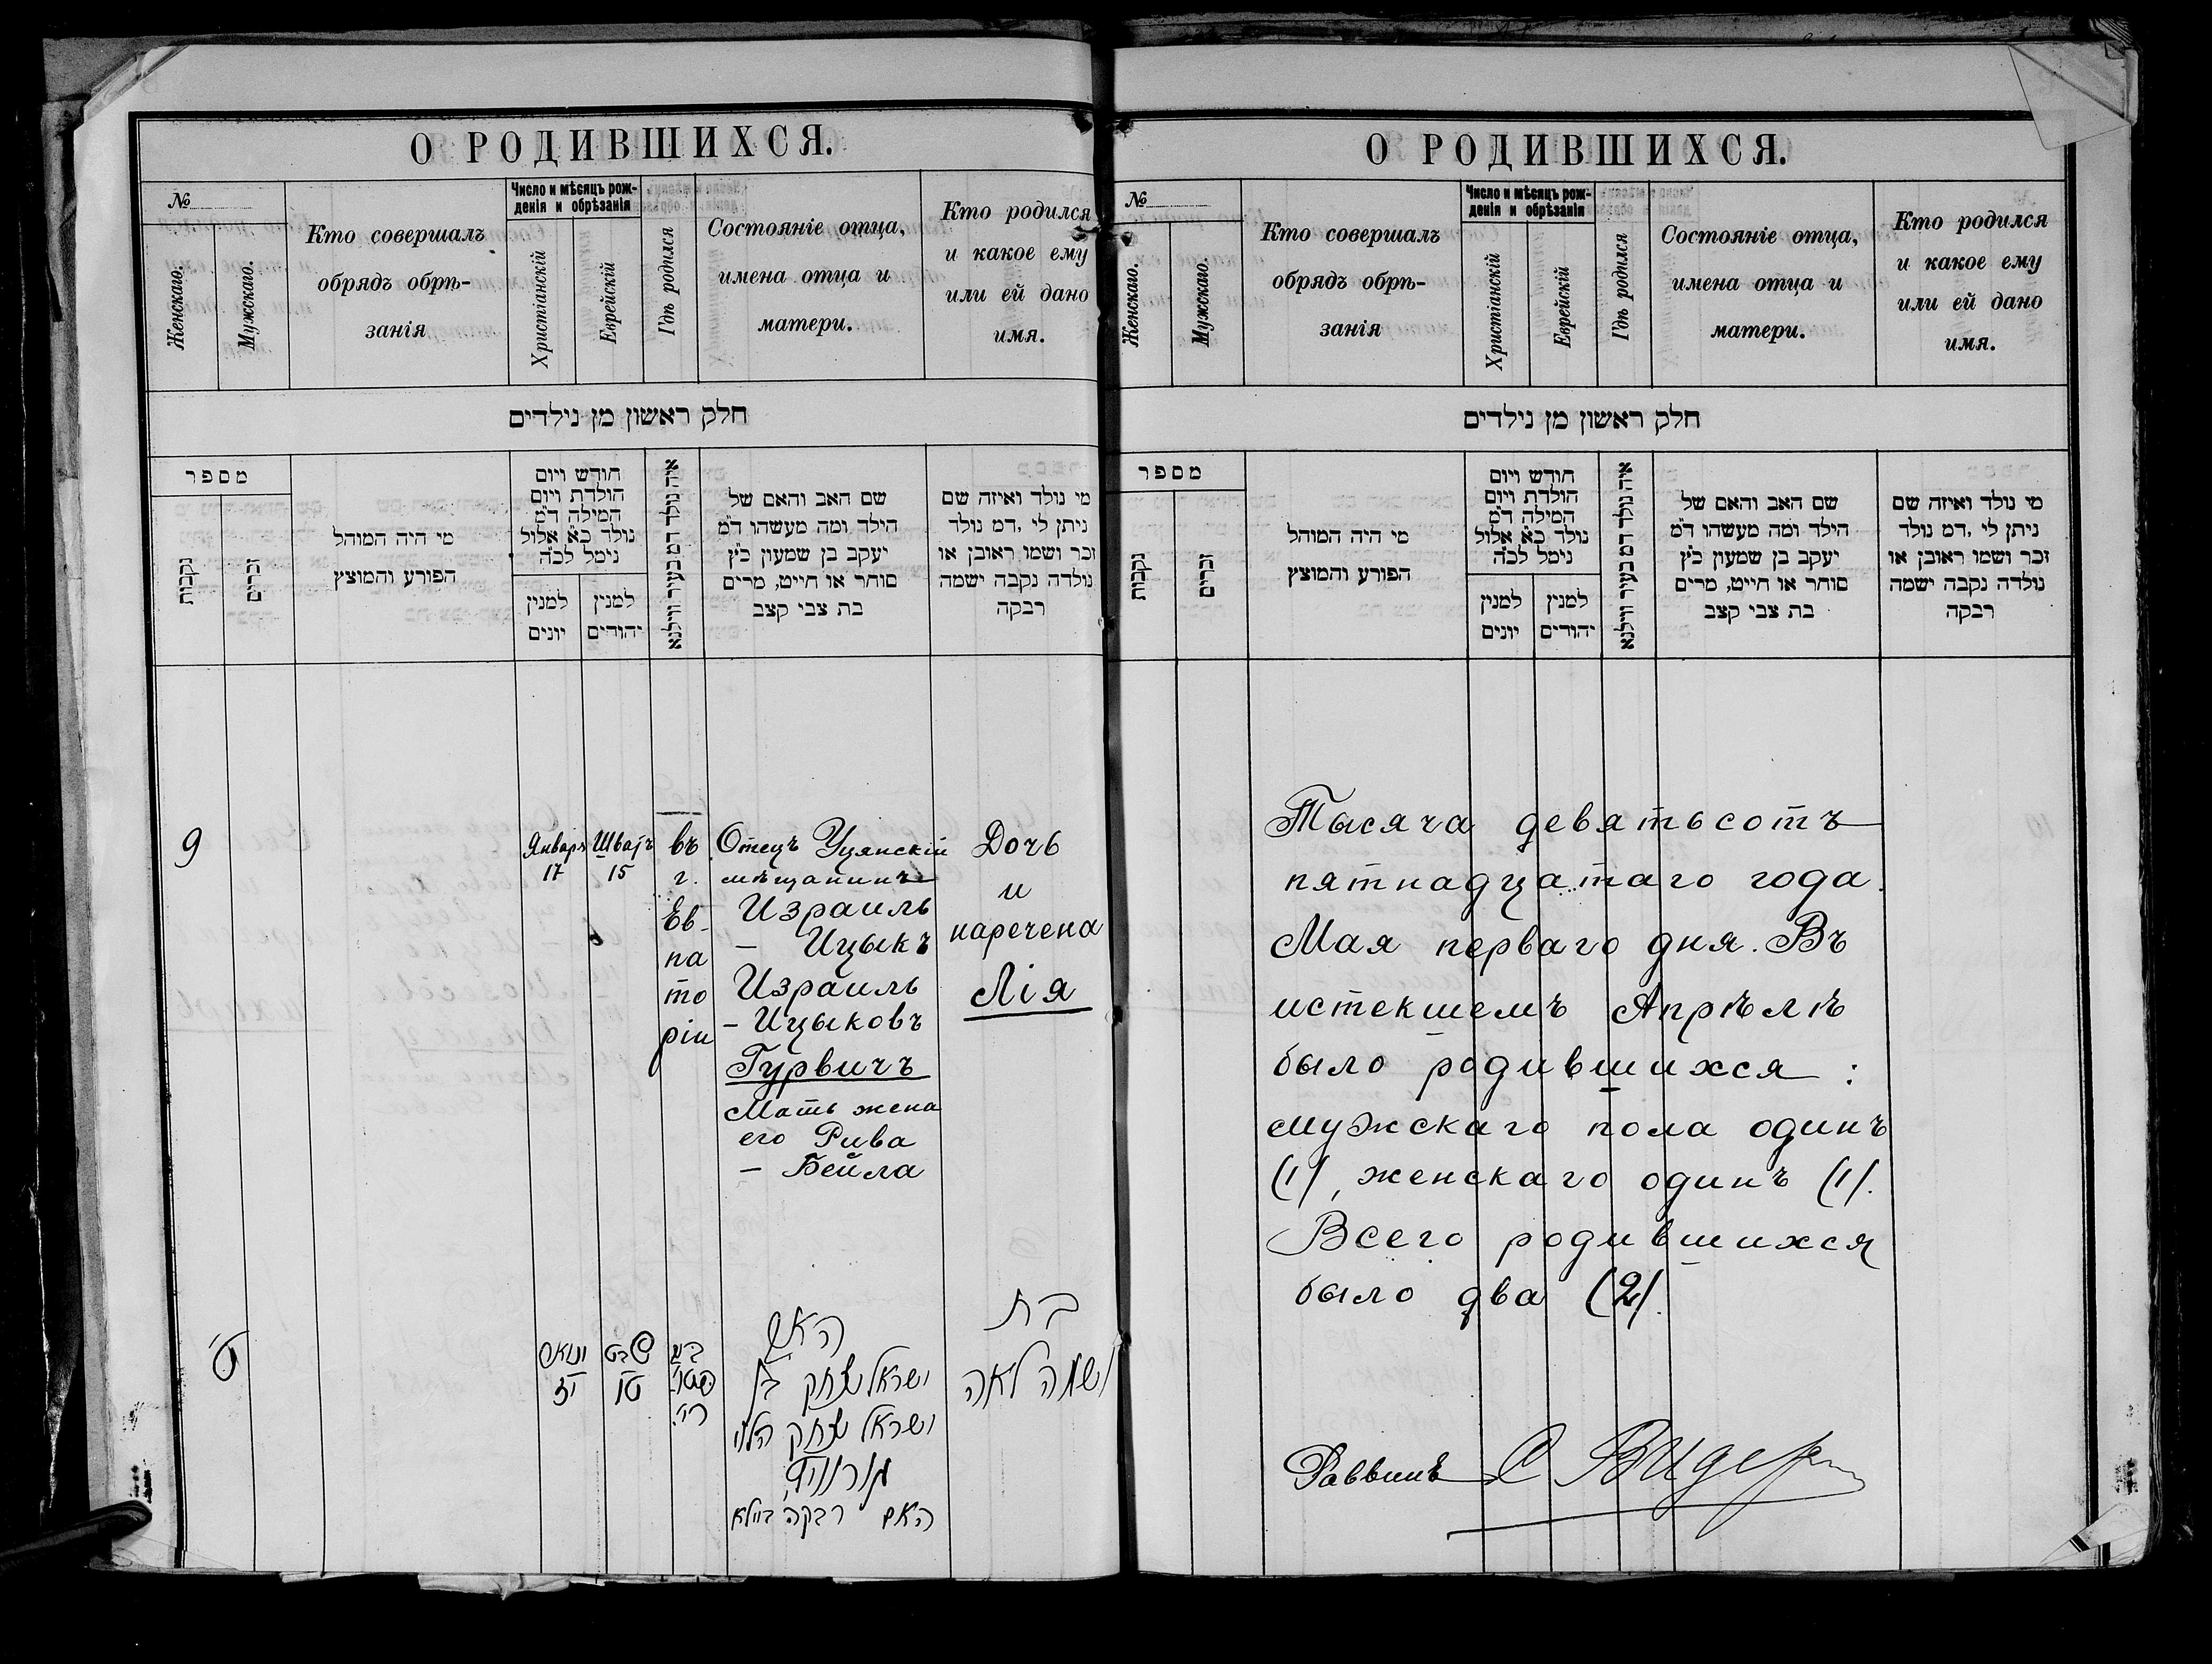 О РОДИВШИХСЯ.
№
Женскаго.
Мужскаго.
Кто совершалъ
обрядъ обрѣ-
занія
Число и мѣсяцъ рож-
денія и обрѣзанія
Христіанскій
Еврейскій
Гдѣ родился
Состояніе отца,
имена отца и
матери.
Кто родился
и какое ему
или ей дано
имя.
חלק ראשון מן נילדים
מספר
נקבות
זכרים
מי היה המוהל
הפורע והמוצץ
חודש ויום
הולדת ויום
המילה ד״מ
נולד כ״א אלול
נימל לכ״ה
למנין
יונים
למנין
יהודים
איה נולד דמ בעיר ווילנא
שם האב והאם של
הילד ומה מעשהו ד״מ
יעקב בן שמעון כ״ץ
סוחר או חייט, מרים
בת צבי קצב
מי נולד ואיזה שם
ניתן לי ,דמ נולד
זכר ושמו ראובן או
נולדה נקבה ישמה
רבקה
9
Январь
17
Шватъ
15
въ
г.
Ев-
па
то
ріи
Отецъ Уцянскій
мѣщанинъ
Израиль
- Ицыкъ
Израиль
- Ицыковъ
Гурвичъ
Мать жена
его Рива
- Бейла
Дочь
и
наречена
Лія
ט׳
ינואר
יז
שבט
טו
האב
ישראל יצחק בן
ישראל יצחק הלוי
גורוויץ
האם רבקה ביילא
בת
ושמה לאה
О РОДИВШИХСЯ.
№
Женскаго.
Мужскаго.
Кто совершалъ
обрядъ обрѣ-
занія
Число и мѣсяцъ рож-
денія и обрѣзанія
Христіанскій
Еврейскій
Гдѣ родился
Состояніе отца,
имена отца и
матери.
Кто родился
и какое ему
или ей дано
имя.
חלק ראשון מן נילדים
מספר
נקבות
זכרים
מי היה המוהל
הפורע והמוצץ
חודש ויום
הולדת ויום
המילה ד״מ
נולד כ״א אלול
נימל לכ״ה
למנין
יונים
למנין
יהודים
איה נולד דמ בעיר ווילנא
שם האב והאם של
הילד ומה מעשהו ד״מ
יעקב בן שמעון כ״ץ
סוחר או חייט, מרים
בת צבי קצב
מי נולד ואיזה שם
ניתן לי ,דמ נולד
זכר ושמו ראובן או
נולדה נקבה ישמה
רבקה
Тысяча девятьсотъ
пятнадцатаго года.
Мая перваго дня. Въ
истекшемъ Апрѣлѣ
было родившихся :
мужскаго пола одинъ
(1), женскаго одинъ (1).
Всего родившихся
было два (2).
Раввинъ С Видер